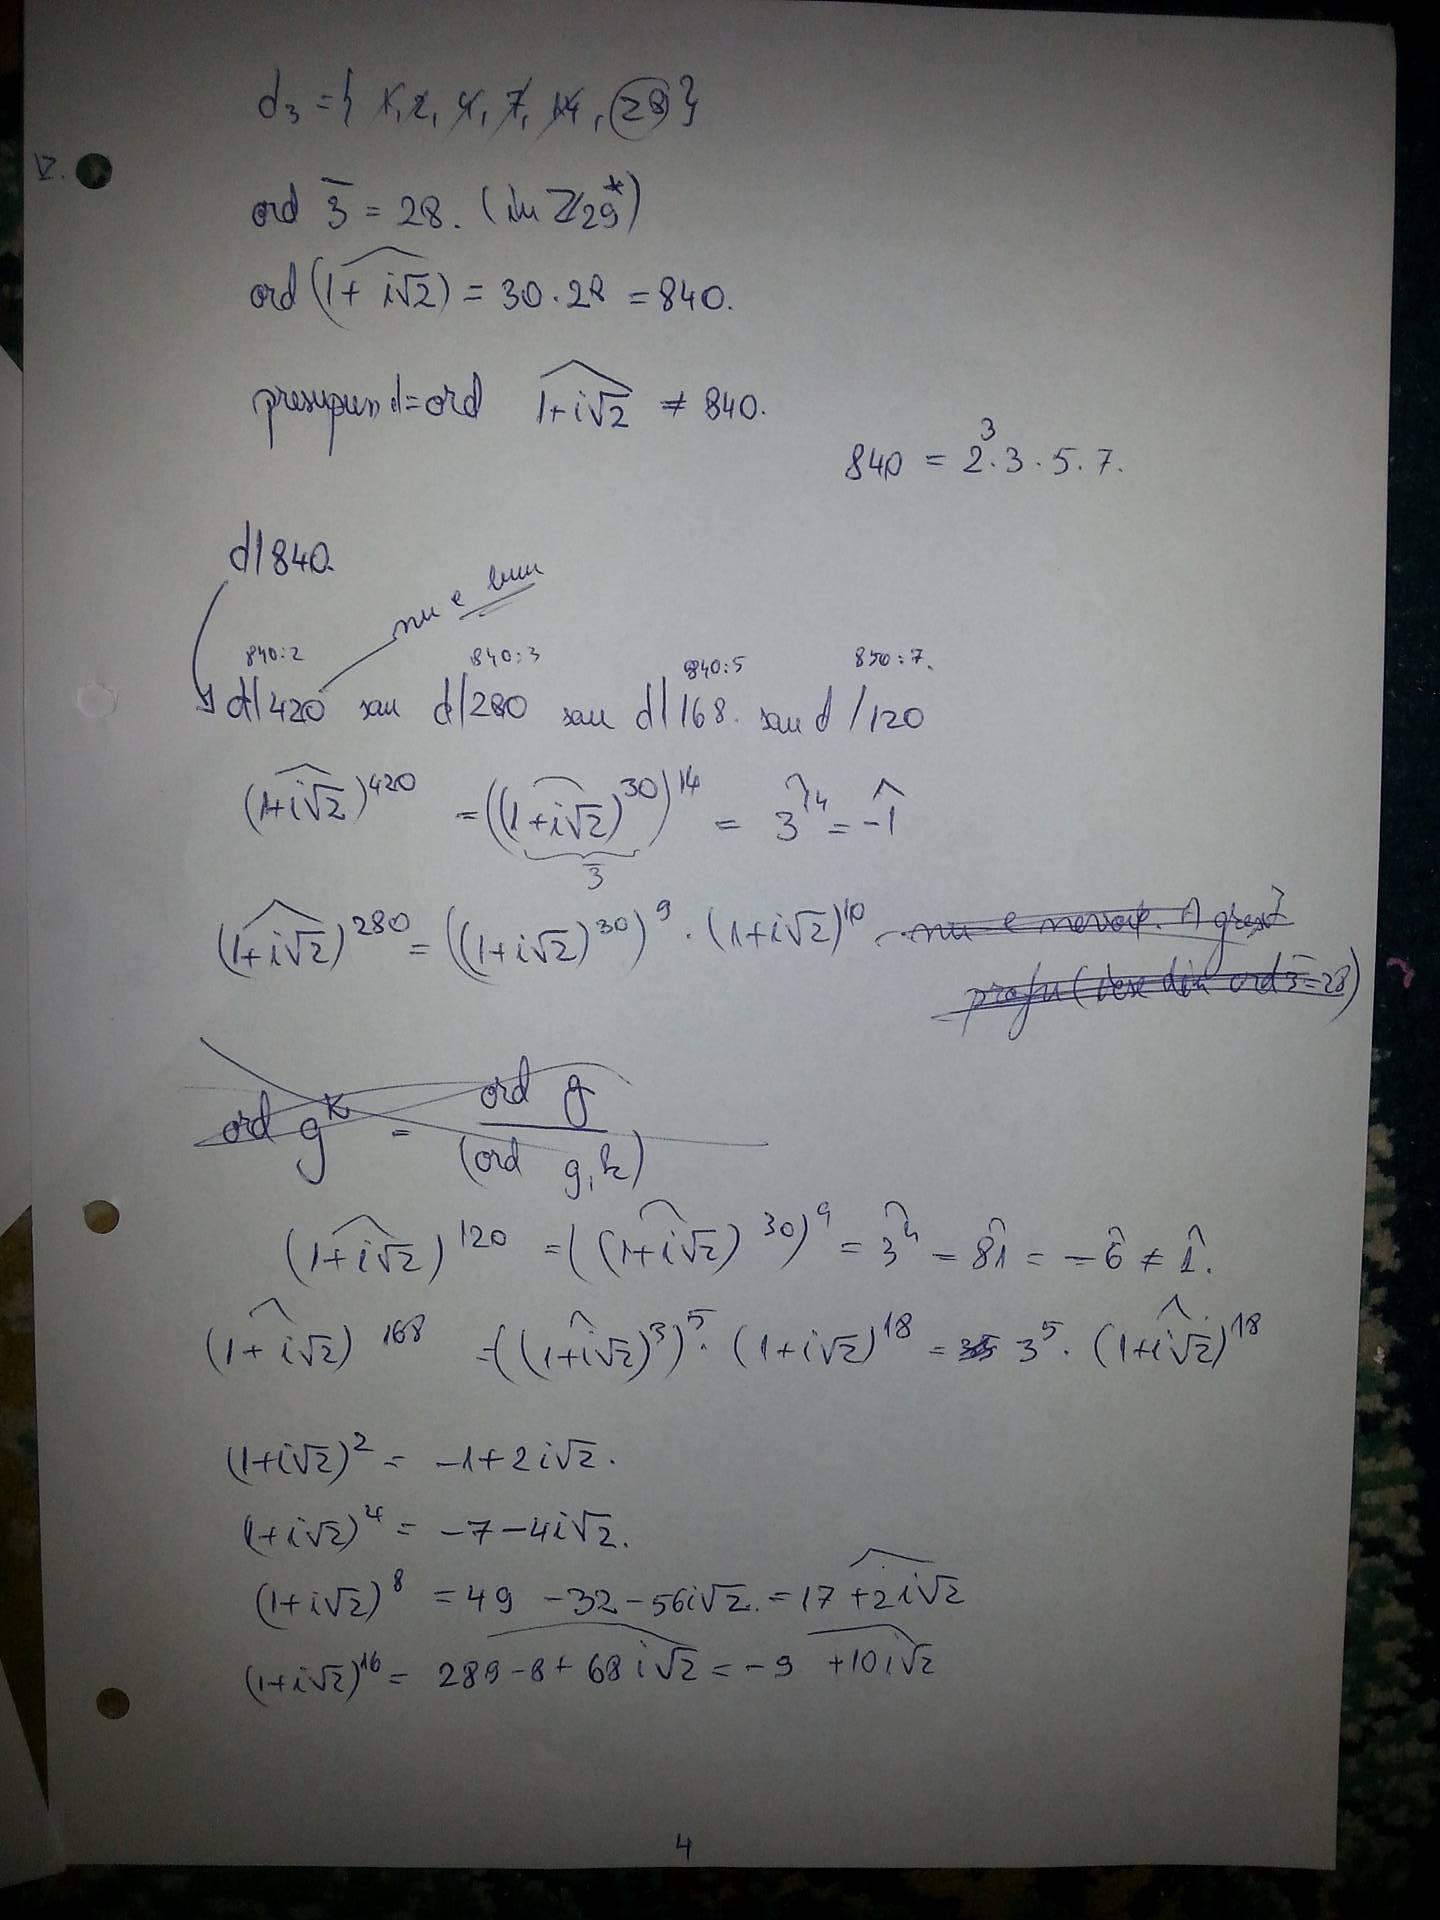 d₃ = { 1, 2, 4, 7, 14, 28 }
V.
ord 3̄ = 28. (în ℤ₂₉*)
ord (1+i√2) = 30 · 28 = 840.
presupun d=ord 1+i√2 ≠ 840.
840 = 2³·3·5·7.
d|840.
nu e bun
840:2 840:3 840:5 850:7.
d|420 sau d|280 sau d|168. sau d/120
(1+i√2)^420 = ((1+i√2)^30)^14 = 3^14 = -1
3
(1+i√2)^280 = ((1+i√2)^30)^9 · (1+i√2)^10 nu e nevoie. A greșit
profu (iese din ord 3̄=28)
ord g^k = ord g / (ord g, k)
(1+i√2)^120 = ((1+i√2)^30)^4 = 3^4 = 81 = -6 ≠ 1.
(1+i√2)^168 = ((1+i√2)^3)^5 · (1+i√2)^18 = 3^5 · (1+i√2)^18
(1+i√2)^2 = -1+2i√2.
(1+i√2)^4 = -7-4i√2.
(1+i√2)^8 = 49 -32-56i√2. = 17+2i√2
(1+i√2)^16 = 289-8+68i√2 = -9 +10i√2
4